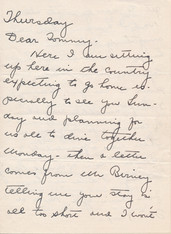 Thursday
Dear Tommy -
Here I am sitting
up here in the country
expecting to go home es-
pecially to see you Sun-
day and planning for
us all to dine together
Monday - then a letter
comes from Mr
telling me your stay is
all too short and I won't